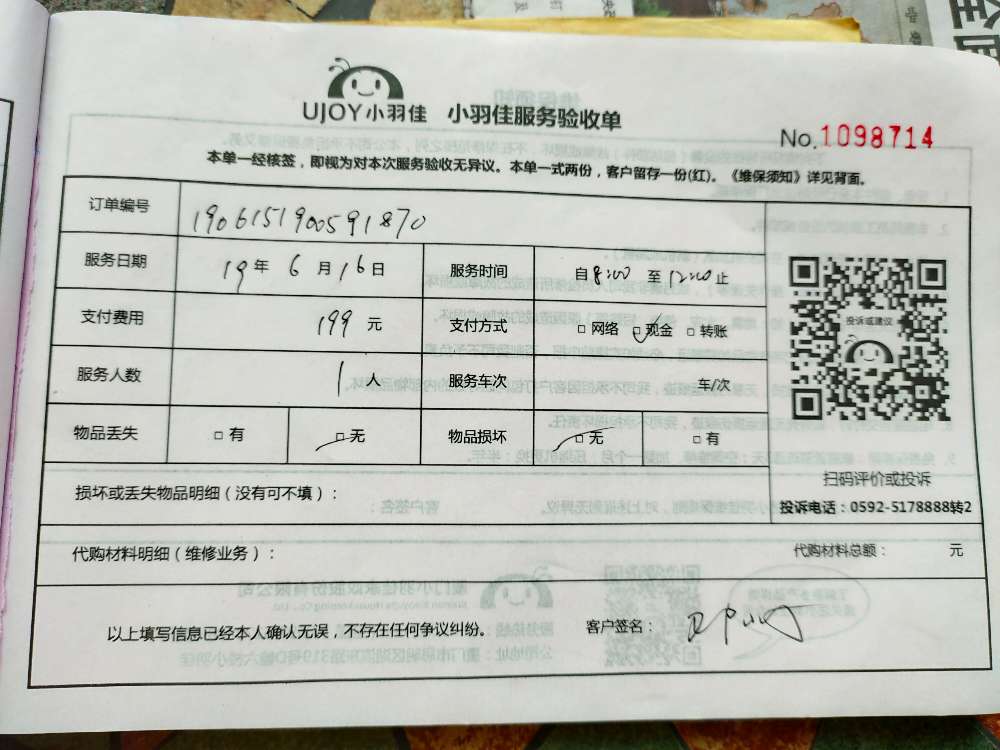 UJOY小羽佳 小羽佳服务验收单
No.1098714
本单一经核签，即视为对本次服务验收无异议。本单一式两份，客户留存一份(红)。《维保须知》详见背面。
订单编号 1906151900591870
服务日期 19年6月16日 服务时间 自8:00至12:00止
支付费用 199元 支付方式 □网络 □现金 □转账
服务人数 1人 服务车次 车/次
物品丢失 □有 □无 物品损坏 □无 □有
投诉或建议
扫码评价或投诉
投诉电话：0592-5178888转2
损坏或丢失物品明细（没有可不填）：
代购材料明细（维修业务）： 代购材料总额： 元
以上填写信息已经本人确认无误，不存在任何争议纠纷。 客户签名：